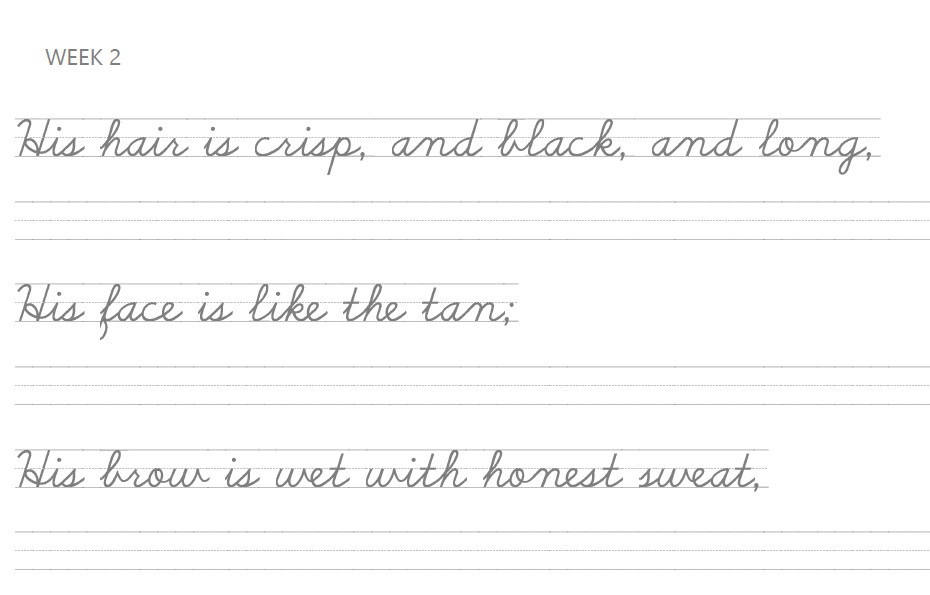 WEEK 2
His hair is crisp, and black, and long,
His face is like the tan;
His brow is wet with honest sweat,